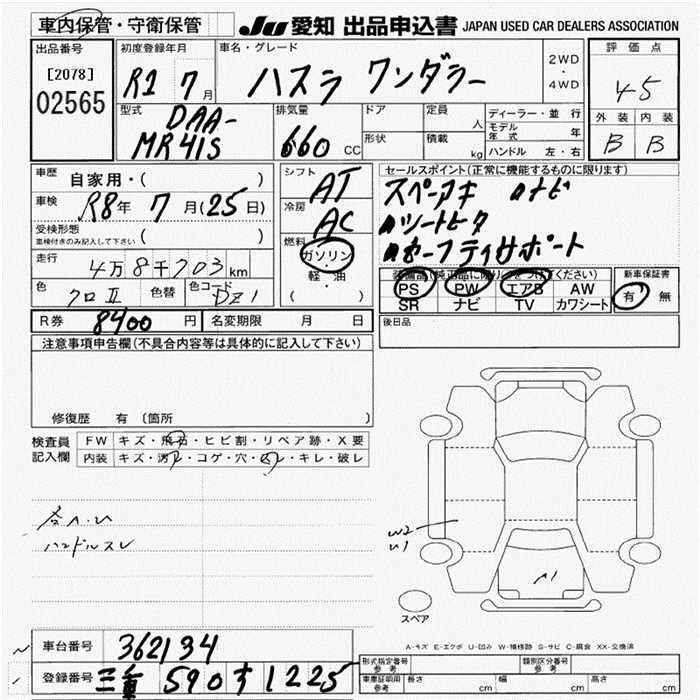 車内保管・守衛保管
JU 愛知 出品申込書 JAPAN USED CAR DEALERS ASSOCIATION
出品番号
[2078]
02565
初度登録年月
R1 7月
車名・グレード
ハスラ ワンダラー
2WD
・
4WD
評価点
45
外装 内装
B B
型式
DAA-
MR41S
排気量
660 CC
ドア
形状
定員
人
積載
kg
ディーラー・並行
モデル年式 年
ハンドル 左・右
車歴
自家用・( )
車検
R8年 7月(25日)
受検形態
車検付きのみ記入して下さい ( )
走行
4万8千703km
色
クロⅡ
色替
色コード
DZ1
シフト
AT
冷房
AC
燃料
ガソリン
・
軽・油
( )
セールスポイント(正常に機能するものに限ります)
スペアキ ナビ
シートヒータ
セーフティサポート
装備品(純正品に限り○をつけてください)
PS PW エアB AW
SR ナビ TV カワシート
新車保証書
有 無
R券 8400円
名変期限 月 日
後日品
注意事項申告欄(不具合内容等は具体的に記入して下さい)
修復歴 有 〔箇所
検査員
記入欄
FW キズ・飛石・ヒビ割・リペア跡・X要
内装 キズ・汚レ・コゲ・穴・凹・キレ・破レ
ハンドルスレ
W2
U1
A1
スペア
A-キズ E-エクボ U-凹み W-補修跡 S-サビ C-腐食 XX-交換済
車台番号 362134
登録番号 三重 590 す 1225
形式指定番号
参考
類別区分番号
参考
車庫証明用
参考
長さ cm
幅 cm
高さ cm